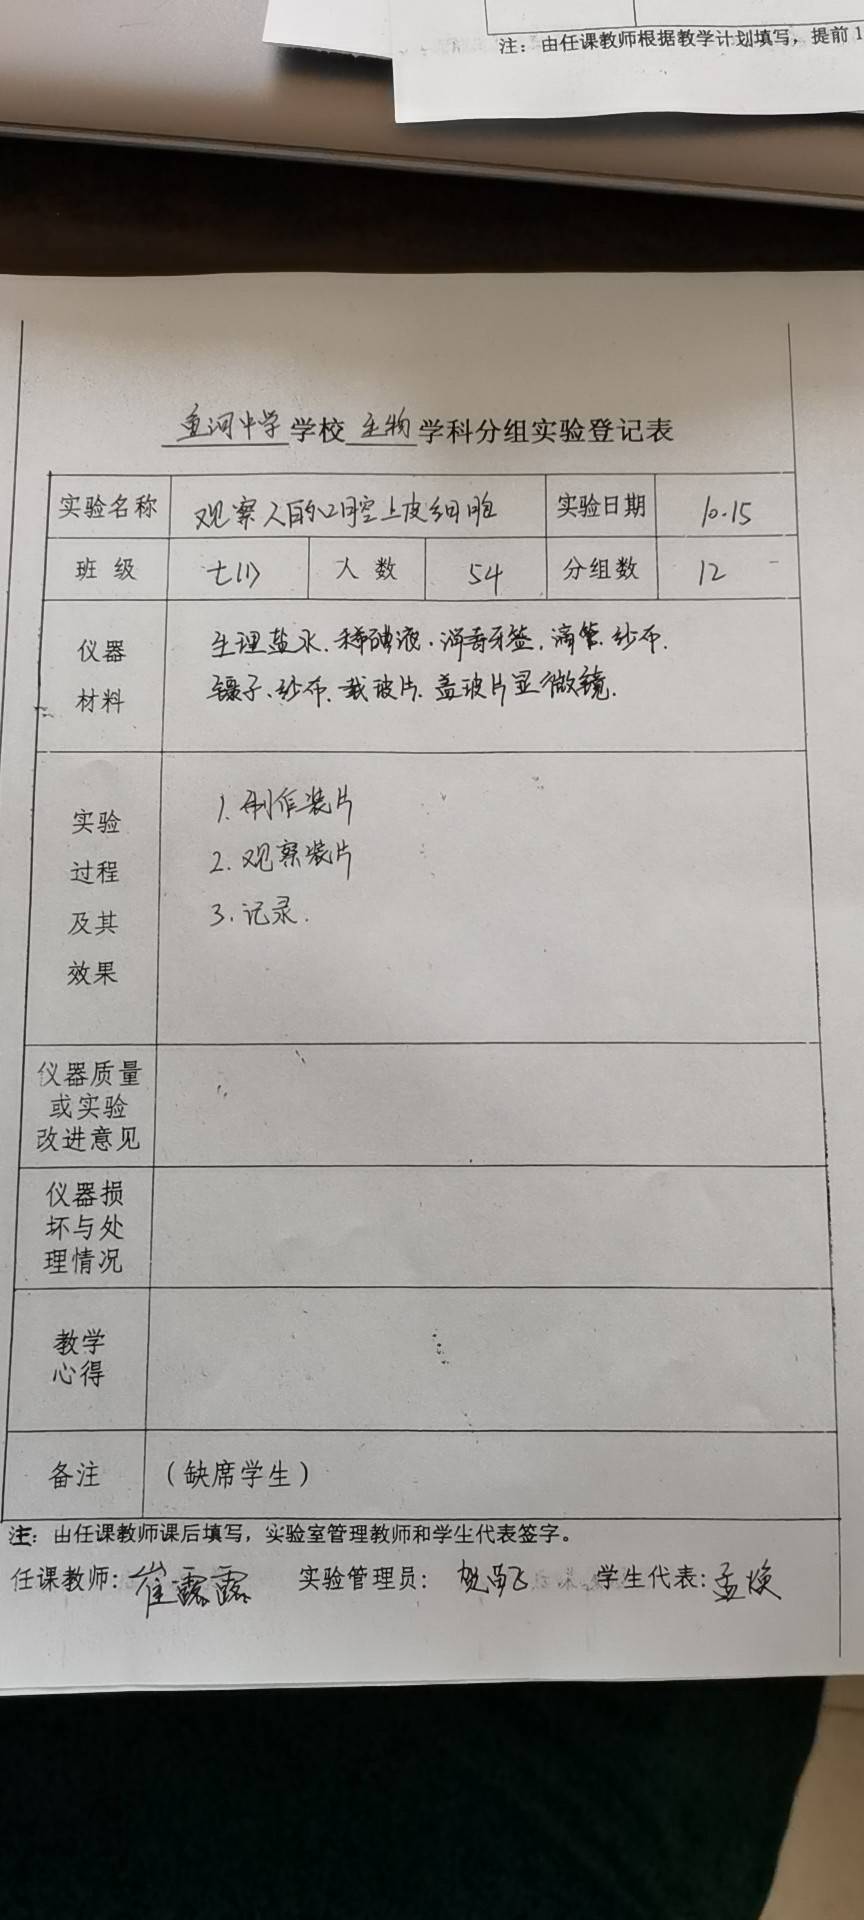 注：由任课教师根据教学计划填写，提前1
鱼河中学学校生物学科分组实验登记表
实验名称 观察人的口腔上皮细胞 实验日期 10.15
班级 七(1) 人数 54 分组数 12
仪器材料 生理盐水.稀碘液.消毒牙签.滴管.纱布.
镊子.纱布.载玻片.盖玻片显微镜.
实验过程及其效果 1.制作装片
2.观察装片
3.记录.
仪器质量
或实验
改进意见
仪器损
坏与处
理情况
教学
心得
备注 （缺席学生）
注：由任课教师课后填写，实验室管理教师和学生代表签字。
任课教师：崔露露 实验管理员： 学生代表：孟焕